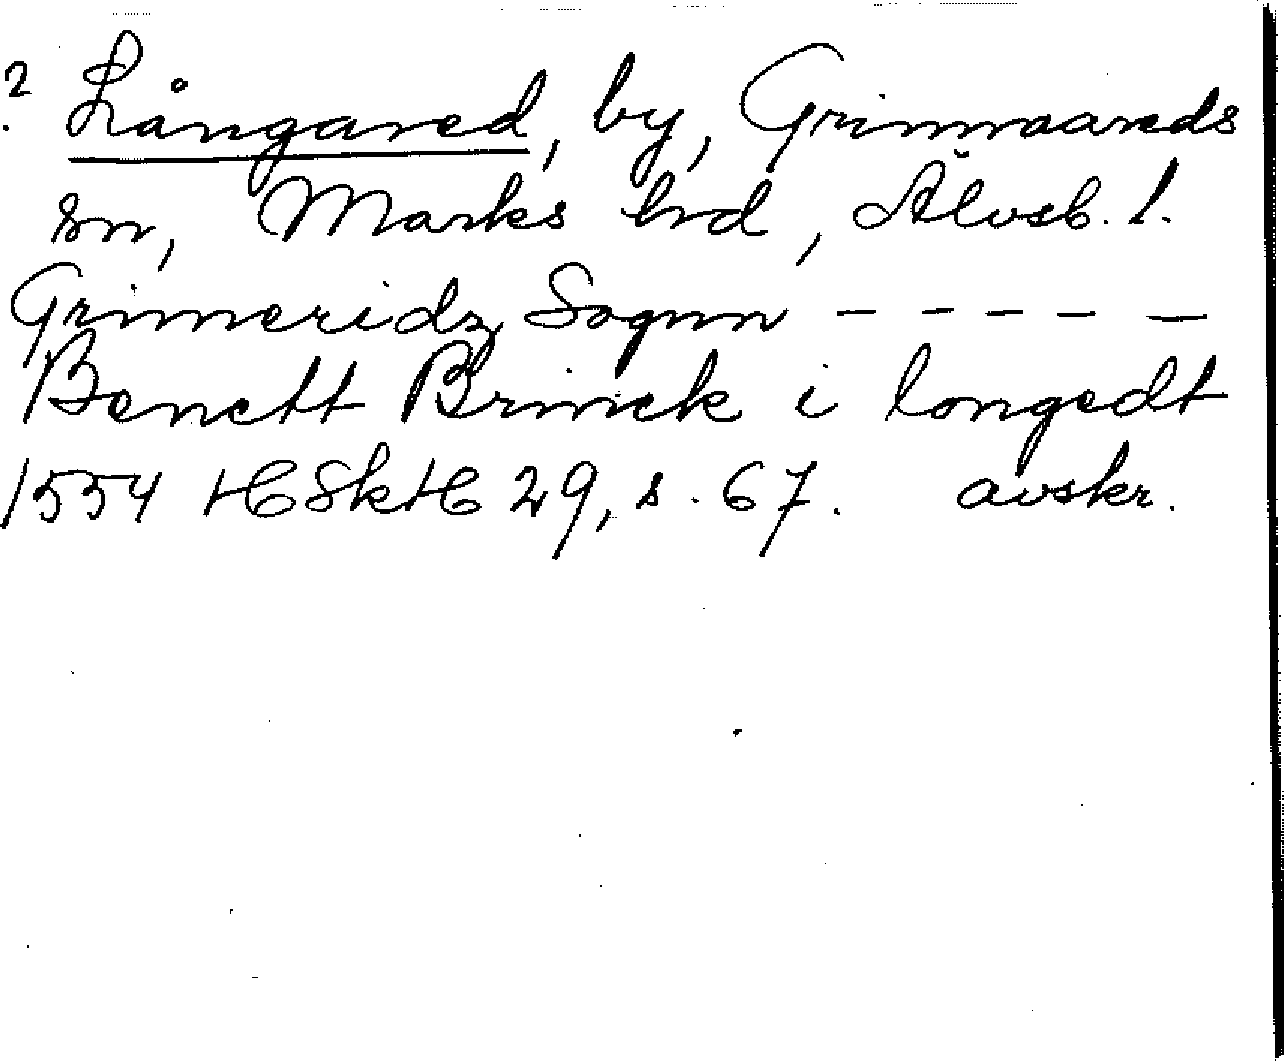 ? Långared, by, Grimmareds
sn, Marks hd, Älvsb. l.
Grimeridz Sognn - - - - -
Benett Brinck i longedt
1554 HSkH 29, s. 67. avskr.